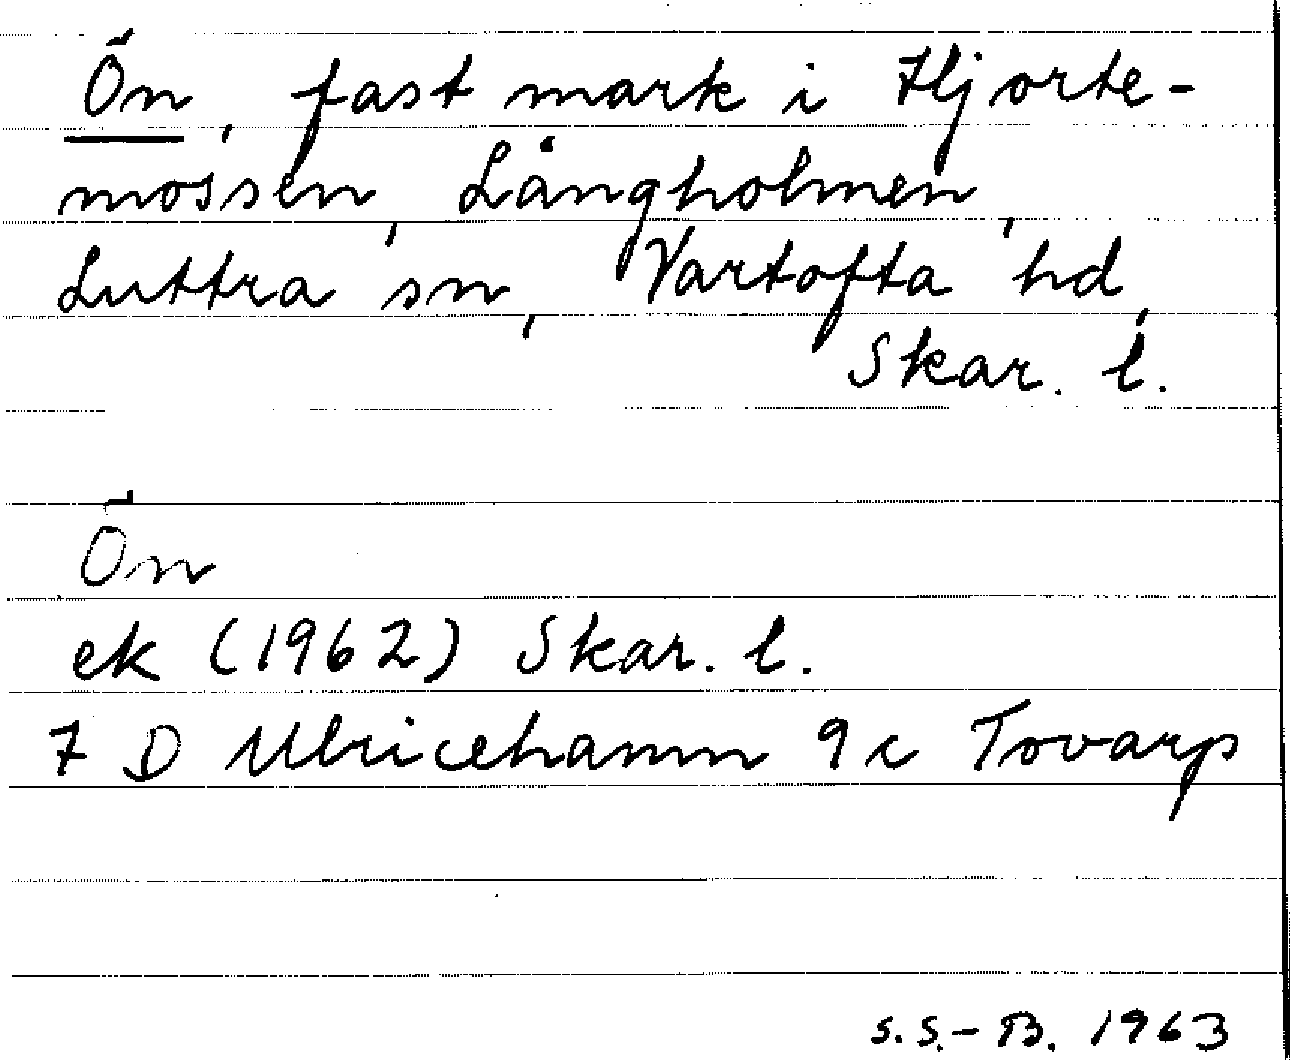 Ön, fast mark i Hjorte-
mossen, Långholmen,
Luttra sn, Vartofta hd,
Skar. l.
Ön
ek (1962) Skar. l.
7 D Ulricehamn 9 c Tovarp
S.S.-B. 1963